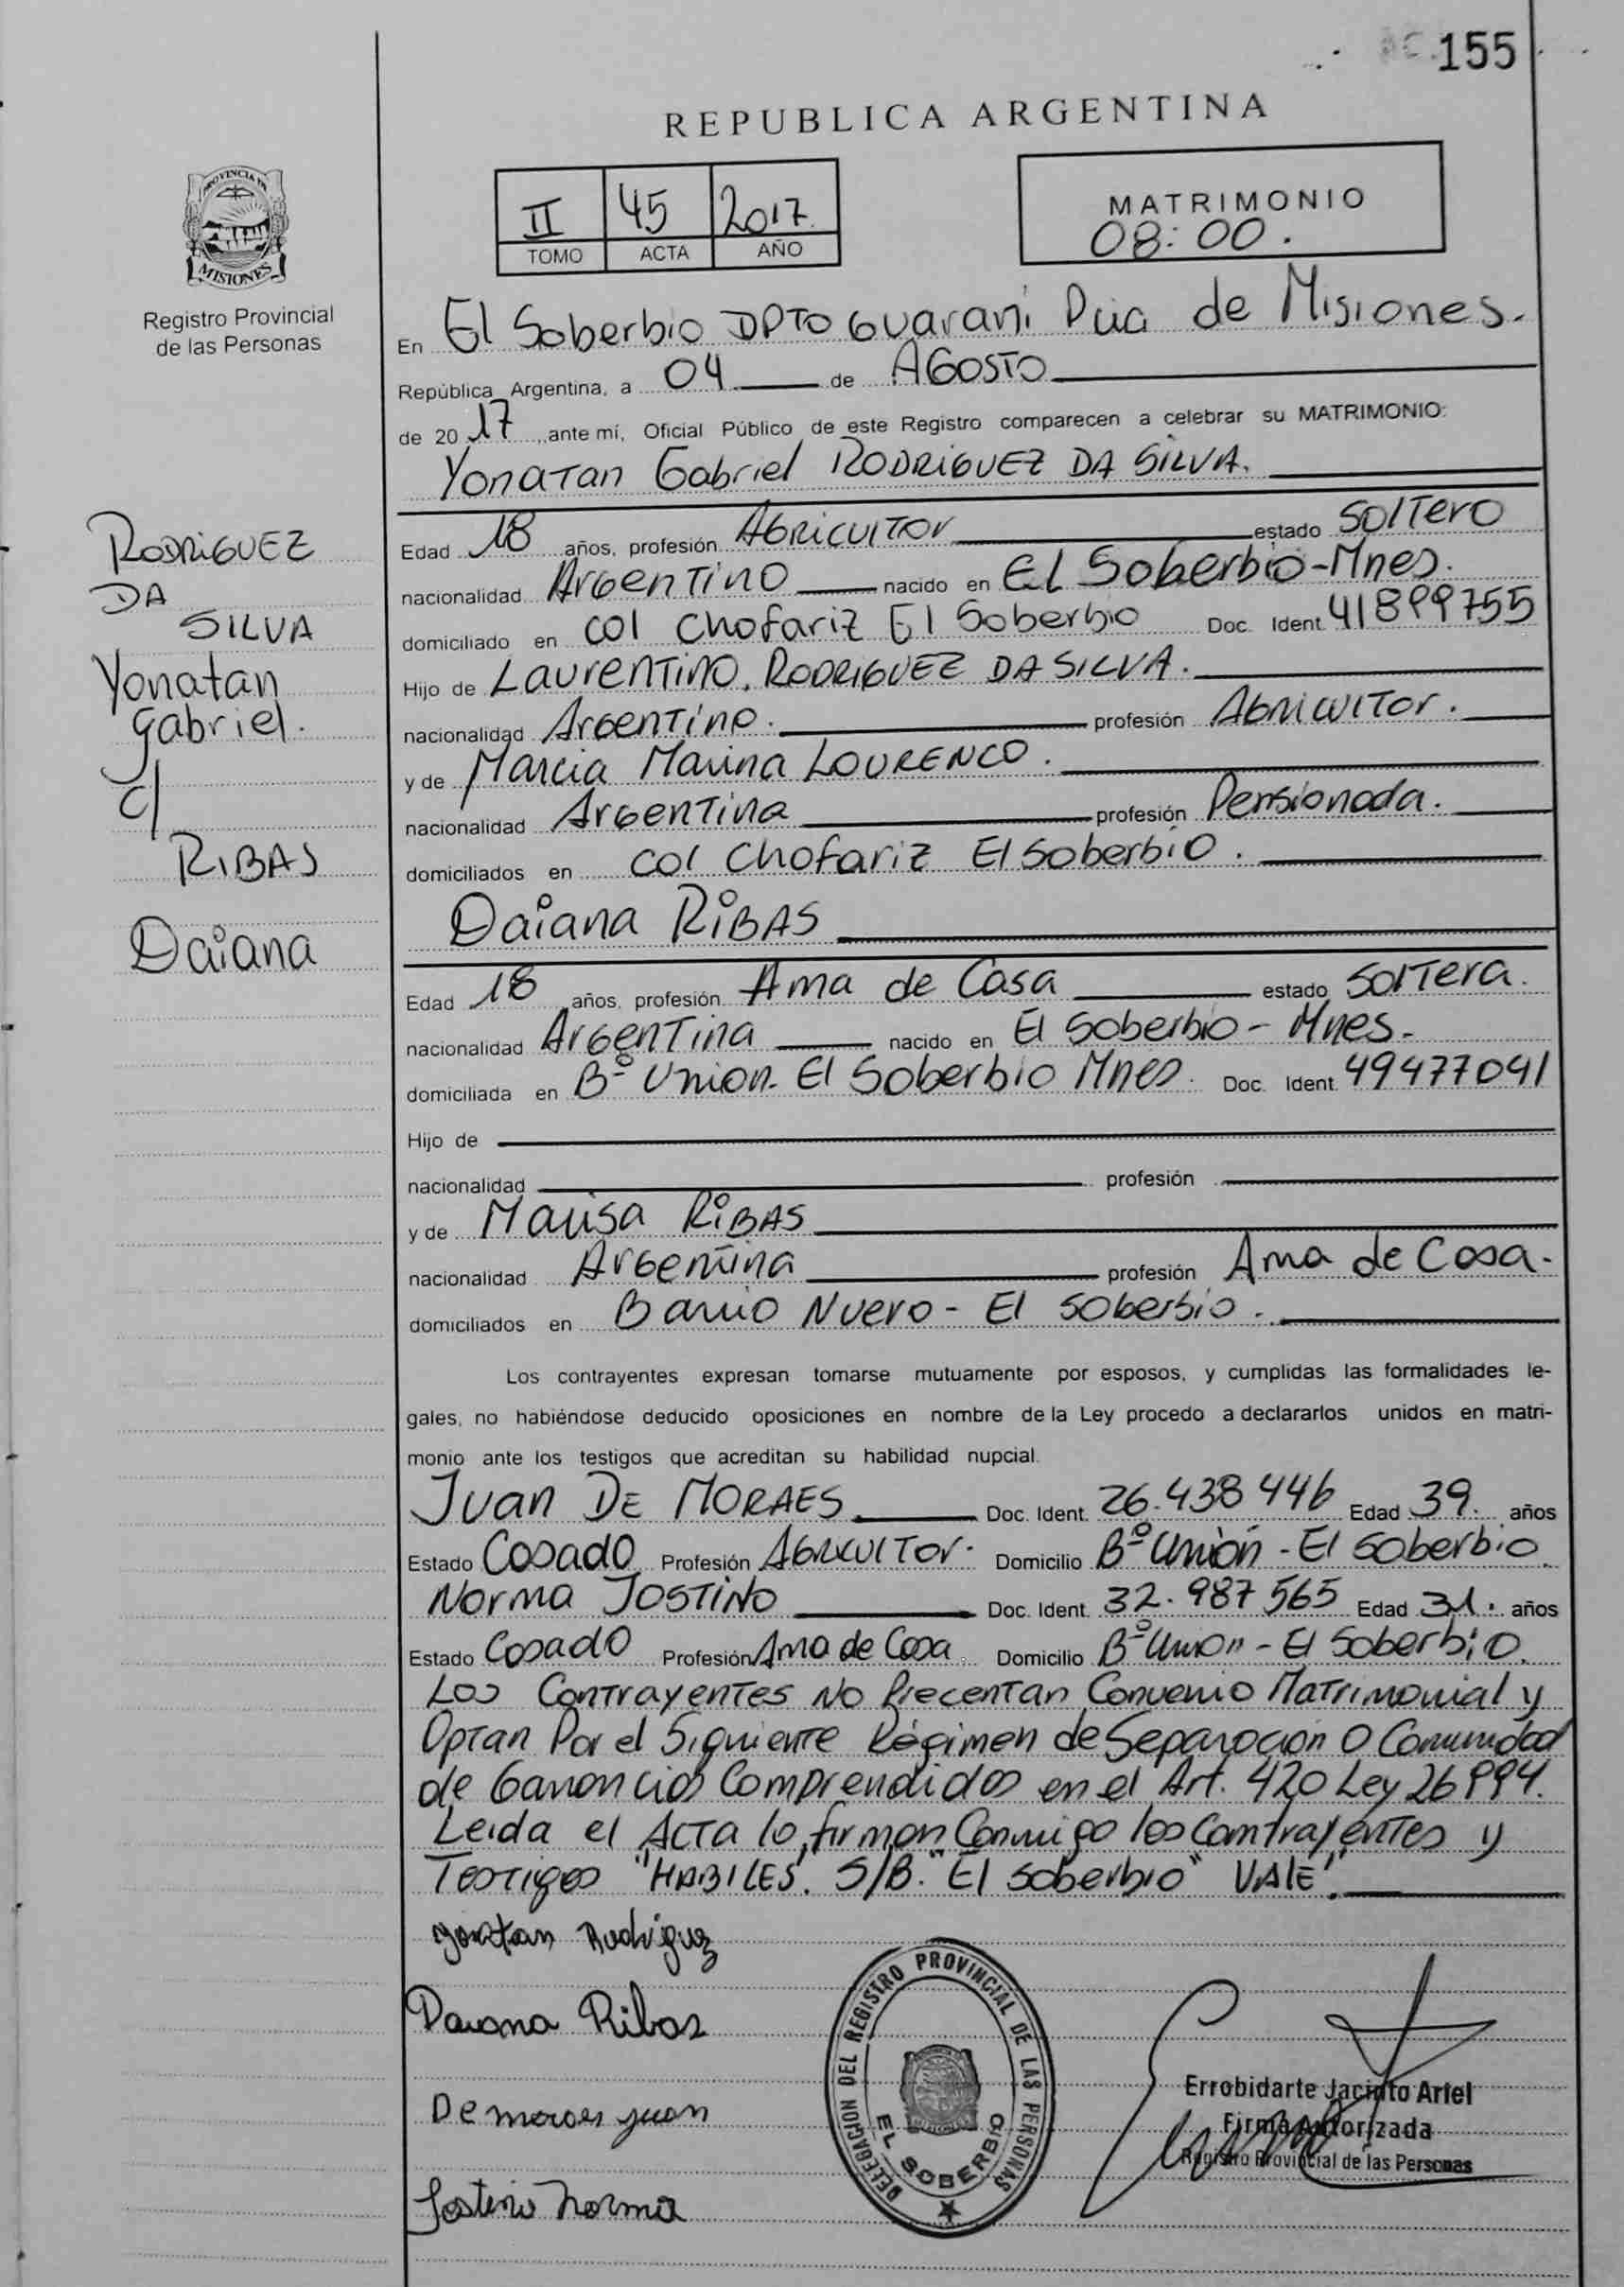 155
REPUBLICA ARGENTINA
PROVINCIA DE
MISIONES
Registro Provincial
de las Personas
II 45 2017
TOMO ACTA AÑO
MATRIMONIO
08:00.
En El Soberbio DPTO Guarani Pcia de Misiones.
República Argentina, a 04 de AGOSTO
de 20 17, ante mí, Oficial Público de este Registro comparecen a celebrar su MATRIMONIO:
Yonatan Gabriel RODRIGUEZ DA SILVA.
RODRIGUEZ
DA
SILVA
Yonatan
gabriel.
c/
RIBAS
Daiana
Edad 18 años, profesión Agricultor estado Soltero
nacionalidad Argentino nacido en El Soberbio-Mnes.
domiciliado en col Chofariz El Soberbio Doc. Ident. 41899755
Hijo de Laurentino. RODRIGUEZ DA SILVA.
nacionalidad Argentino. profesión Agricultor.
y de Marcia Marina LOURENCO.
nacionalidad Argentina profesión Pensionada.
domiciliados en col Chofariz El Soberbio.
Daiana RIBAS
Edad 18 años, profesión Ama de Casa estado Soltera.
nacionalidad Argentina nacido en El Soberbio - Mnes.
domiciliada en Bº Union. El Soberbio Mnes. Doc. Ident. 49477041
Hijo de
nacionalidad profesión
y de Marisa RIBAS
nacionalidad Argentina profesión Ama de Casa.
domiciliados en Barrio Nuevo - El Soberbio.
Los contrayentes expresan tomarse mutuamente por esposos, y cumplidas las formalidades le-
gales, no habiéndose deducido oposiciones en nombre de la Ley procedo a declararlos unidos en matri-
monio ante los testigos que acreditan su habilidad nupcial.
Juan DE MORAES Doc. Ident. 26.438 446 Edad 39. años
Estado Casado Profesión Agricultor. Domicilio Bº Unión - El Soberbio.
Norma JOSTINO Doc. Ident. 32.987 565 Edad 31. años
Estado Casado Profesión Ama de Casa. Domicilio Bº Union - El Soberbio.
Los Contrayentes No Precentan Convenio Matrimonial y
Optan Por el Siguiente Régimen de Separación O Comunidad
de Ganancias Comprendidos en el Art. 420 Ley 26994.
Leida el Acta lo firman Conmigo los Contrayentes y
Testigos "HABILES". S/B. "El Soberbio" VALE".
Yonatan Rodriguez
Daiana Ribas
De moraes juan
Jostino Norma
DELEGACION DEL REGISTRO PROVINCIAL DE LAS PERSONAS
EL SOBERBIO
Errobidarte Jacinto Ariel
Firma Autorizada
Registro Provincial de las Personas